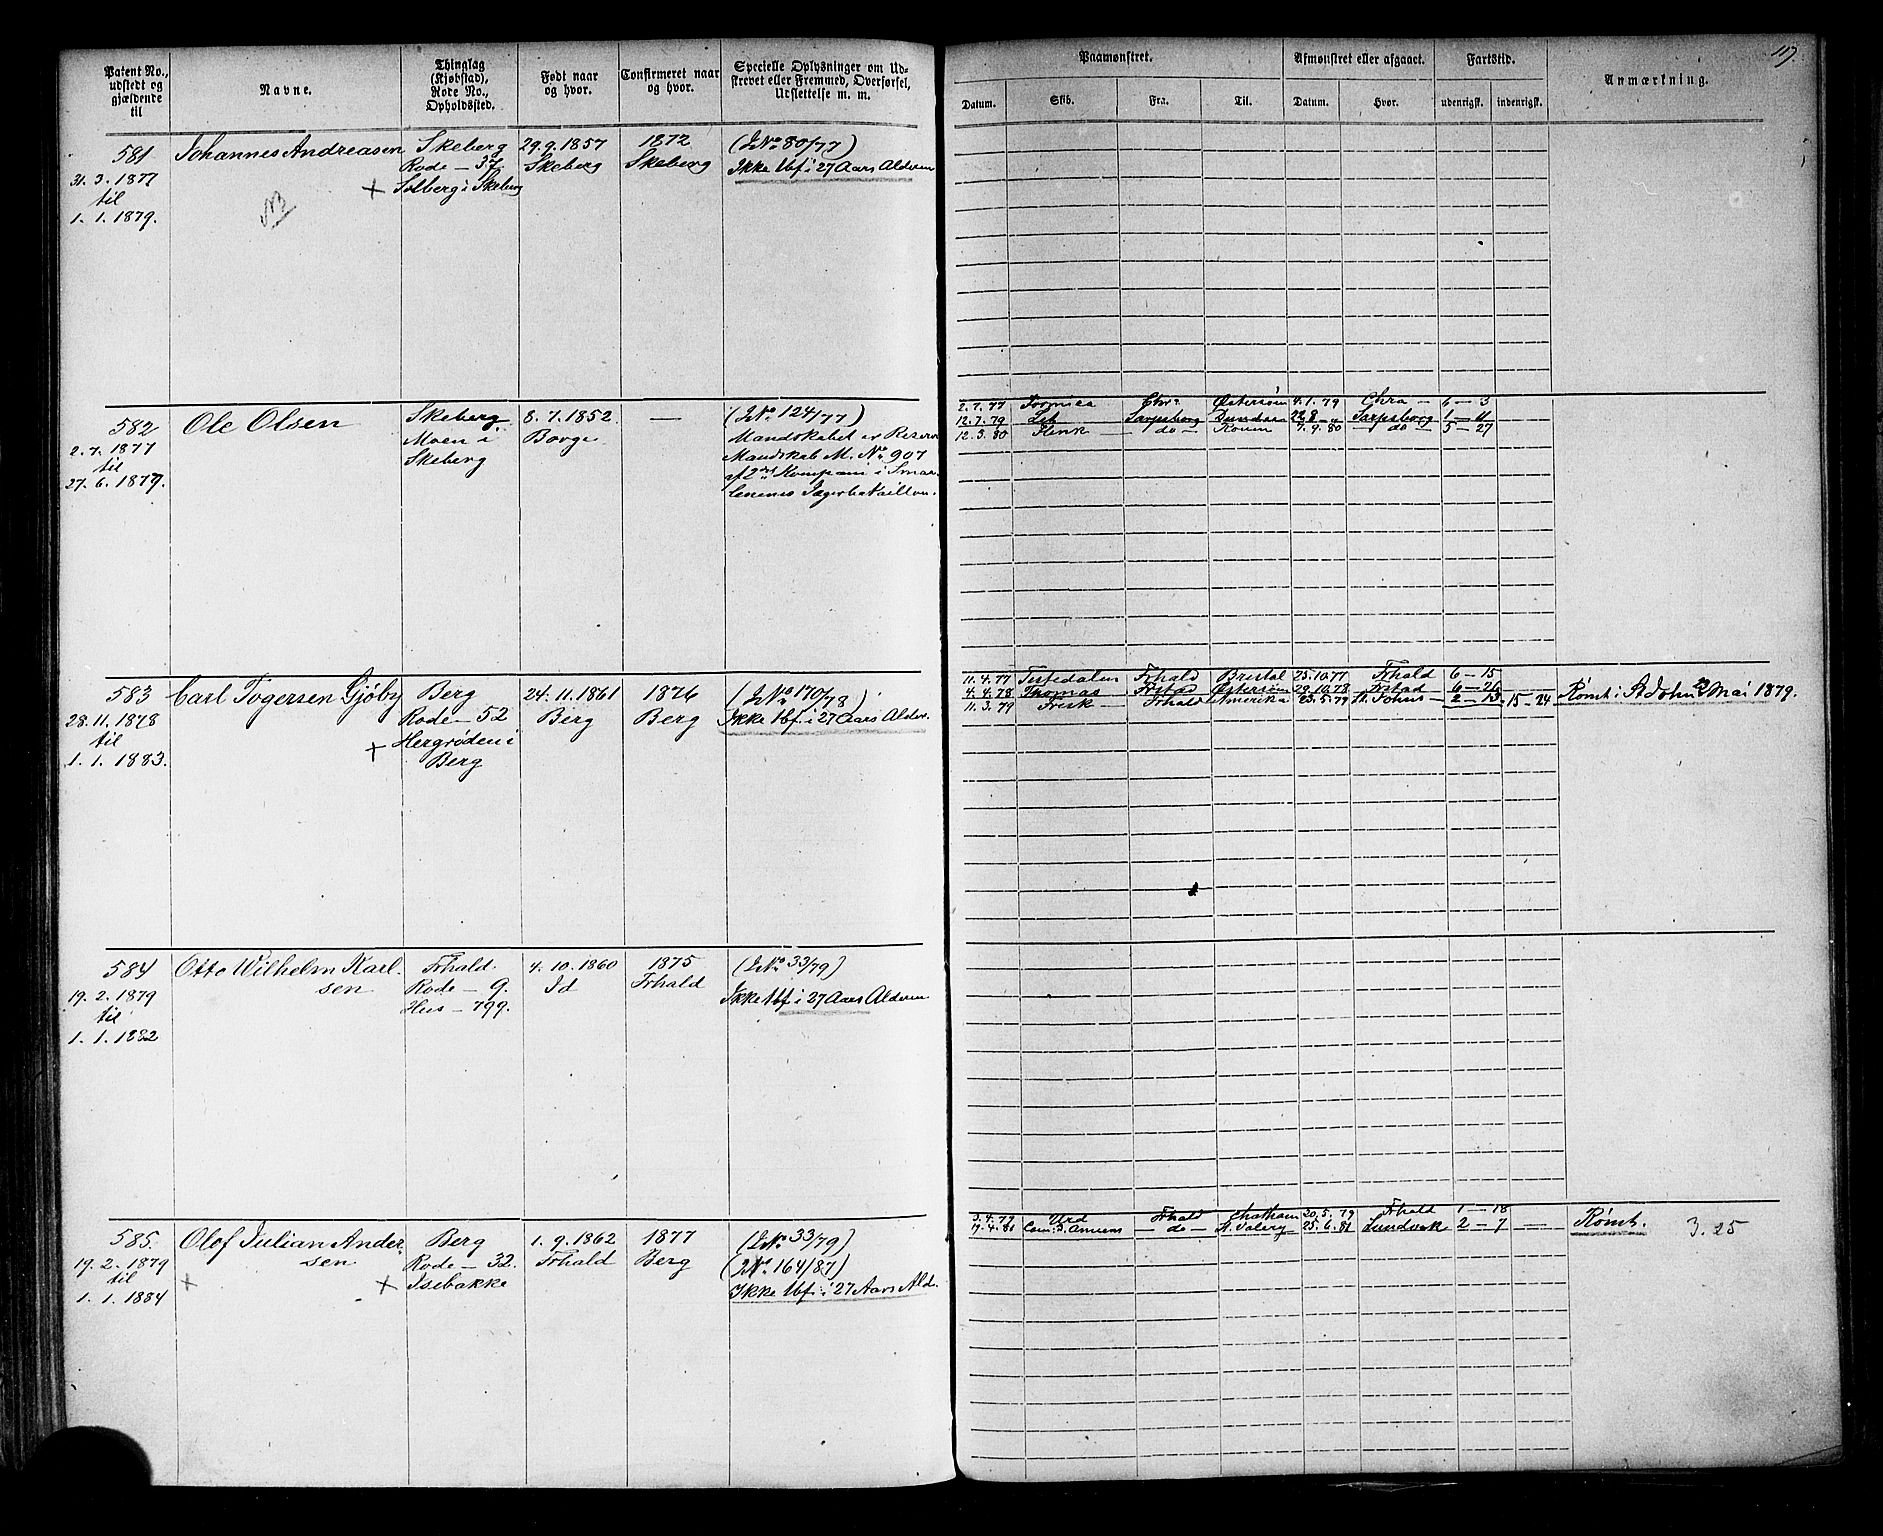 117.
Patent No., udstedt og gjældende til
Navne.
Thinglag (Kjøbstad), Rode No., Opholdssted.
Født naar og hvor.
Confirmeret naar og hvor.
Specielle Oplysninger om Udskrevet eller Fremmed, Overførsel, Udslettelse m. m.
Paamønstret.
Afmønstret eller afgaaet.
Fartstid.
Anmærkning.
Datum.
Skib.
Fra.
Til.
Datum.
Hvor.
udenrigsk.
indenrigsk.
581 Johannes Andreasen Skeberg 29.9.1857 1872 (J.No 80/77)
31.3.1877 Rode — 37 Skeberg Skeberg Ikke Ubf i 27 Aars Alderen
til + Solberg i Skeberg
1.1.1879. NB
582 Ole Olsen Skeberg 8.7.1852 — (J.No 124/77)
2.7.1877 Moen i Borge Mandskabet er Reserve
til Skeberg Mandskab M. No 907
27.6.1879. af 2det Kompani i Smaa-
lenenes Jægerbataillon.
2.7.77 Chra Østersøen 4.1.79 Chra — 6 — 3
12.7.79 Sarpsborg 22.8 — „ Sarpsborg 1 — 11
12.3.80 — do — Rouen 7.9.80 — do — 5 — 27
583 Carl Togersen Gjøby Berg 24.11.1861 1876 (J.No 170/78)
28.11.1878 Rode — 52 Berg Berg Ikke Ubf i 27 Aars Alder.
til + Hergrøden i
1.1.1883. Berg
11.4.77 Tistedalen Frhald Bristol 25.10.77 Frhald 6 — 15
4.4.78 Thomas Frstad Østersøen 28.10.78 Frstad 6 — 26
11.3.79 Frisk — Frhald Amerika 23.5.79 St. Johns — 2 — 13. 15 — 24 Rømt i St John 2 Mai 1879.
584 Otto Wilhelm Karl- Frhald. 4.10.1860 1875 (J.No 33/79)
19.2.1879 sen Rode — 9. Id Frhald Ikke Ubf i 27 Aars Alderen
til Hus — 799.
1.1.1882
585. Olof Julian Ander- Berg 1.9.1862 1877 (J.No 33/79)
19.2.1879 sen Rode — 32. Frhald Berg (J.No 164/87)
til + + Isebakke Ikke Ubf i 27 Aars Ald.
1.1.1884
3.4.79 Urd Frhald Chatham 20.5.79 Frhald 1 — 18
17.4.81 — do — St. Valery 25.6.81 Lundvik 2 — 7 — Rømt. 3.25